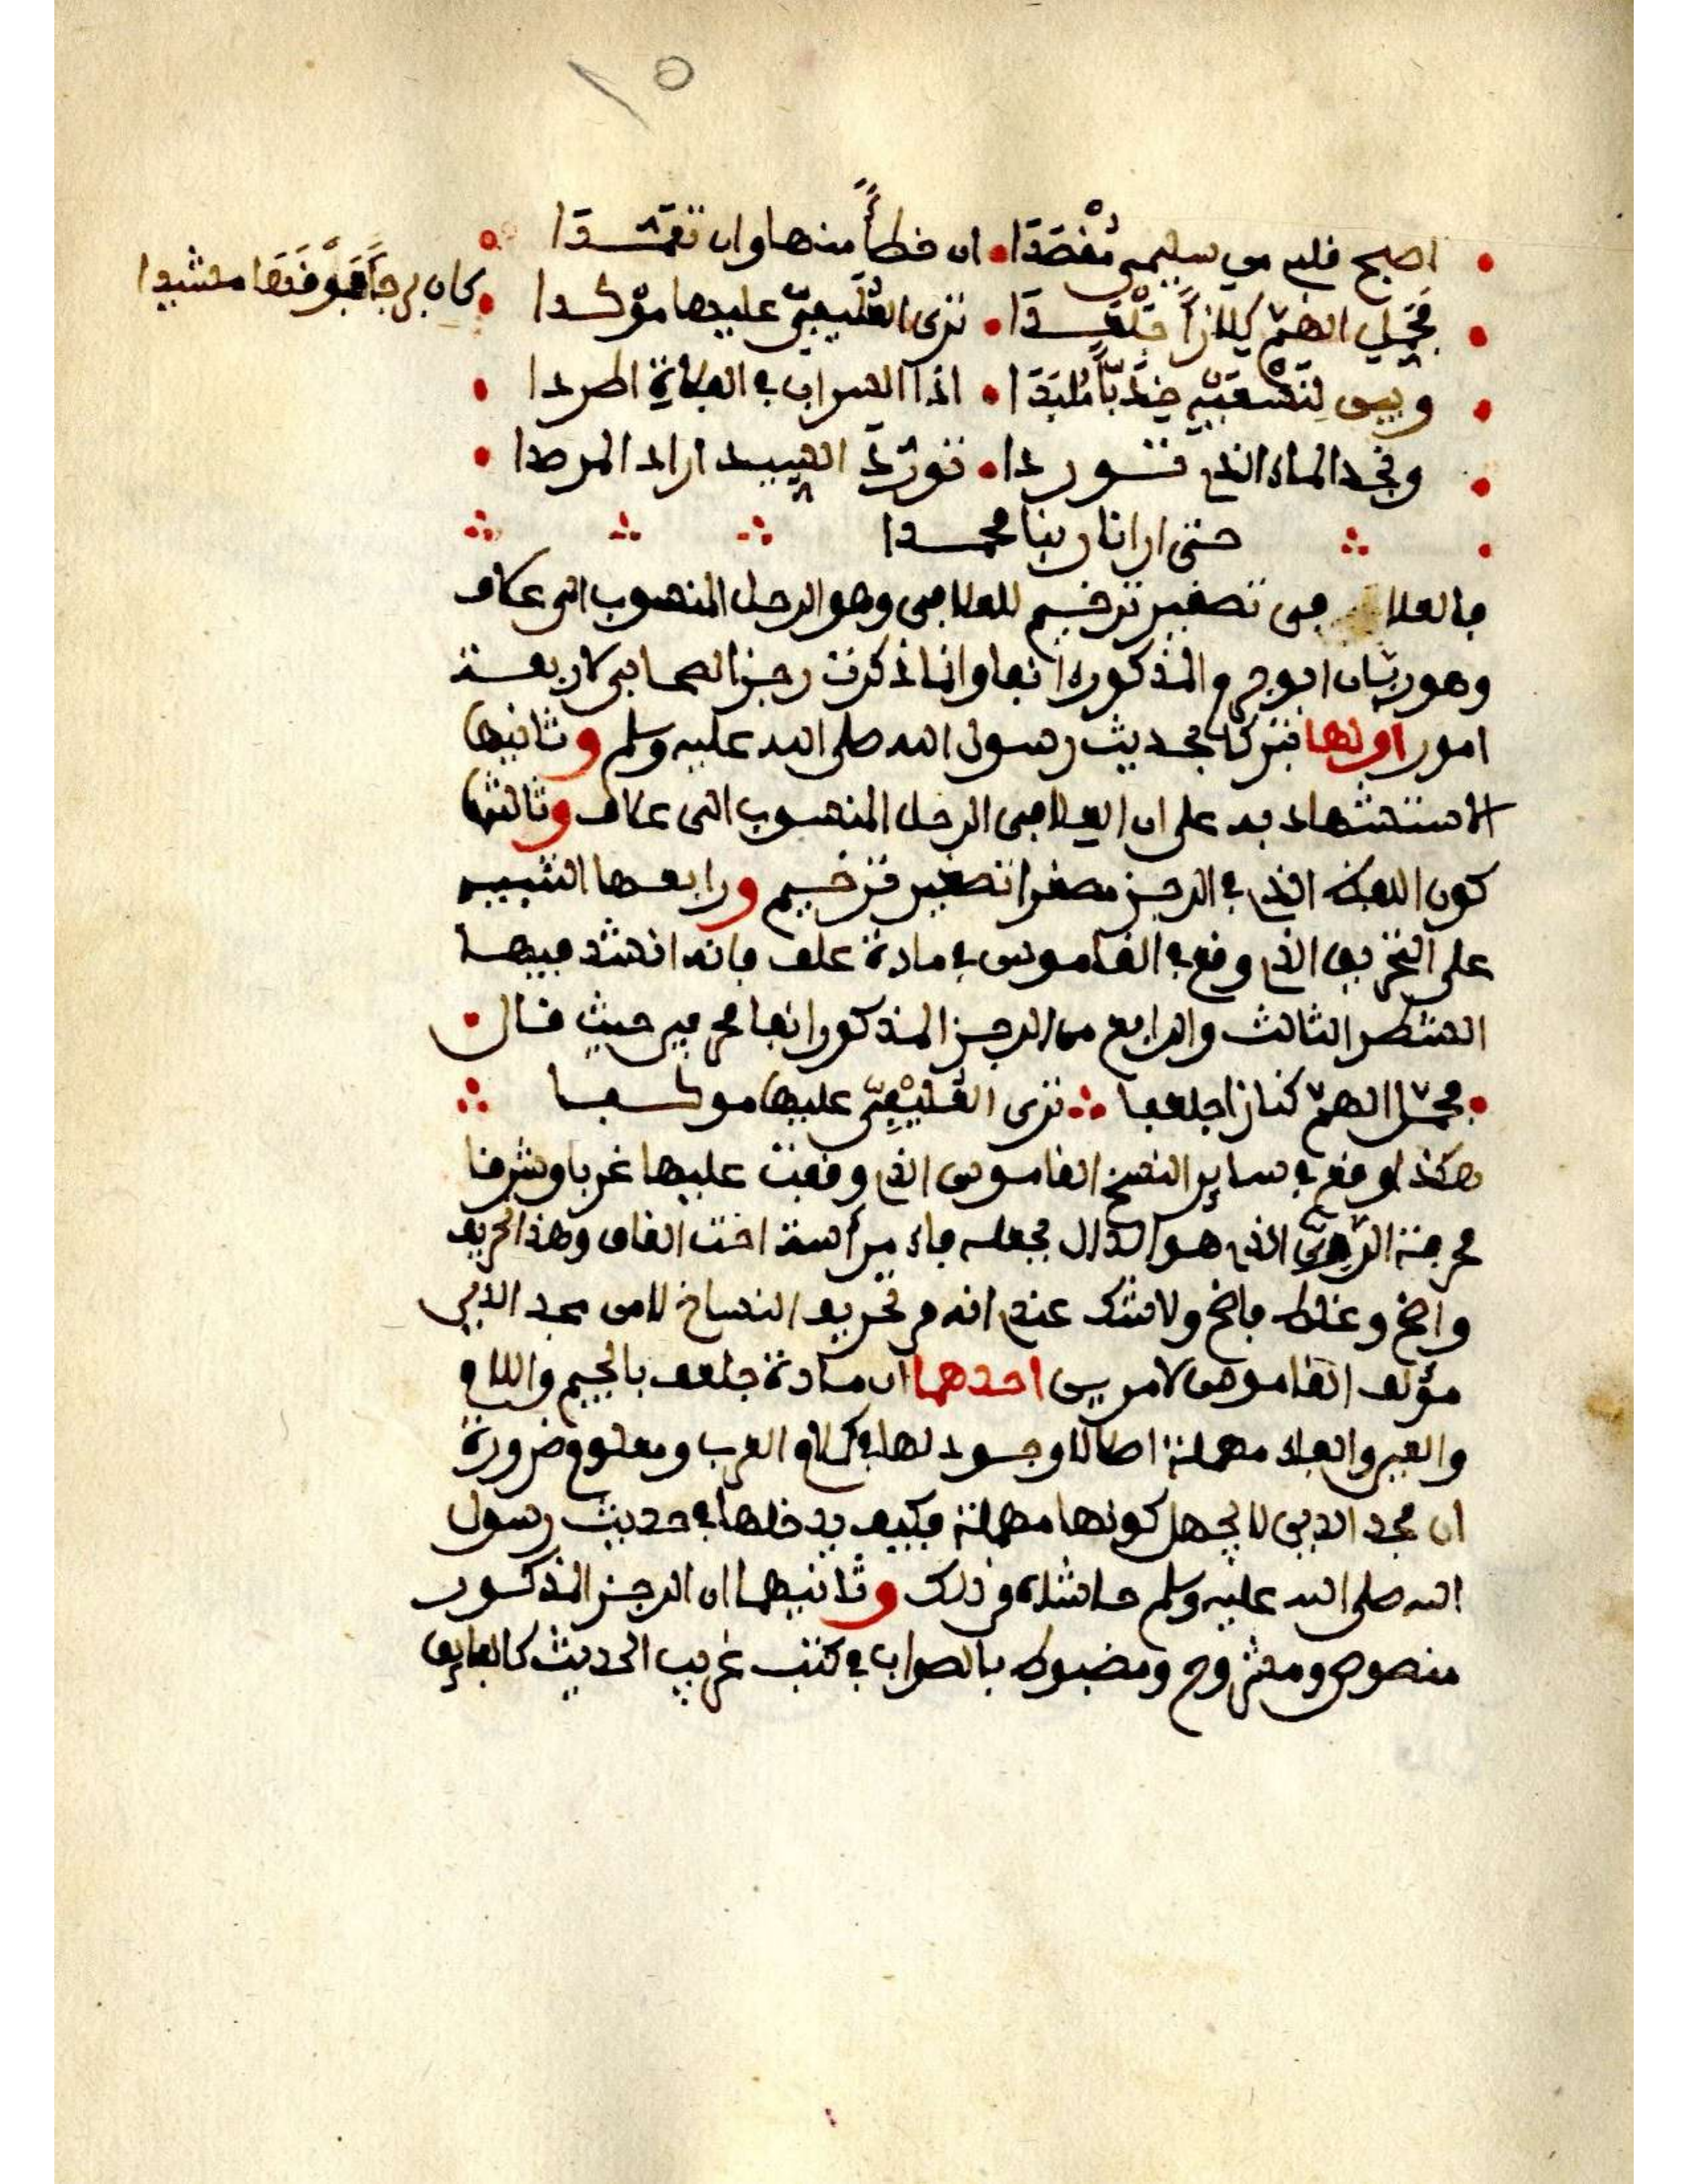 اصبح قلبي من سليمى مُقْصَدَا • ان خطأً منها وان تعمّدا
كان برجا فوقها مشيدا
فحَمِّلِ الهمّ كِلازاً جَلْعَدا • ترى العُلَيفيّ عليها مؤكدا
وبين نِسْعَيْهِ خِدَبّاً مُلْبِدَا • اذا السراب في الفلاة اطردا
ونجد الماء الذي تــورد ا • تورُّدَ السيد اراد المرصدا
حتى ارانا ربنا محمــدا
فالعلا في تصغير ترخيم للعلافي وهو الرحل المنسوب الى علاف
وهو ربّان ابو جرم المذكور انفا وانما ذكرت رجز الصحابي لاربعــة
امور اولها تبركا بحديث رسول الله صلى الله عليه وسلم وثانيها
الاستشهاد به على ان العلافي الرحل المنسوب الى علاف وثالثها
كون اللفظ الذي في الرجز مصغرا تصغير ترخيم ورابعها التنبيه
على التحريف الذي وقع في القاموس في مادة علف فانه انشد فيهــا
الشطر الثالث والرابع من الرجز المذكور انفا محرفين حيث قــال •
• فحمّل الهمّ كنازا جلعفا ∴ ترى العُلَيْفِيّ عليها موكــفا
هكذا وقع في ساير النسخ القاموس الذي وقفت عليها غربا وشرقا
محرفة الرّويّ الذي هو الدال بجعله فاء مرأسة اخت القاف وهذا تحريف
واضح وغلط فاضح ولا شك عندي انه من تحريف النساخ لا من مجد الدين
مؤلف القاموس لامرين احدهما ان مادة جلعف بالجيم واللام
والعين والفاء مهملة اصلا لا وجود لها في كلام العرب ومعلوم ضرورة
ان مجد الدين لا يجهل كونها مهملة فكيف يدخلها في حديث رسول
الله صلى الله عليه وسلم حاشاه من ذلك وثانيهما ان الرجز المذكور
منصوص ومشروح ومضبوط بالصواب في كتب غريب الحديث كالفايق